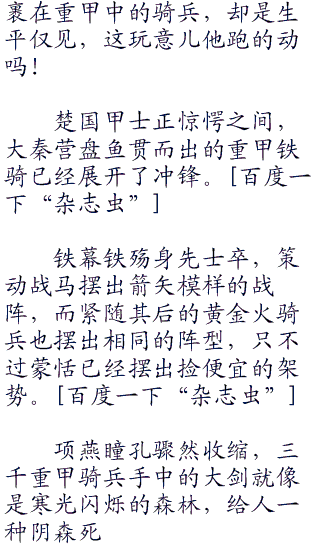 裹在重甲中的骑兵，却是生
平仅见，这玩意儿他跑的动
吗！
楚国甲士正惊愕之间，
大秦营盘鱼贯而出的重甲铁
骑已经展开了冲锋。[百度一
下“杂志虫”]
铁幕铁殇身先士卒，策
动战马摆出箭矢模样的战
阵，而紧随其后的黄金火骑
兵也摆出相同的阵型，只不
过蒙恬已经摆出捡便宜的架
势。[百度一下“杂志虫”]
项燕瞳孔骤然收缩，三
千重甲骑兵手中的大剑就像
是寒光闪烁的森林，给人一
种阴森死